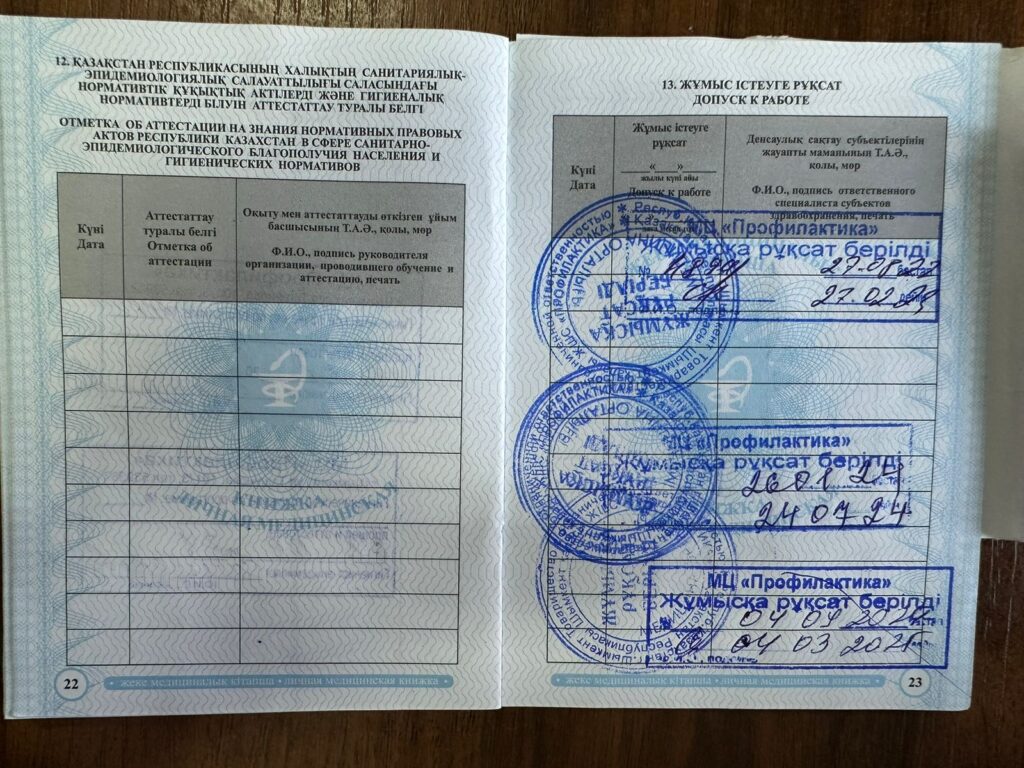 12. ҚАЗАҚСТАН РЕСПУБЛИКАСЫНЫҢ ХАЛЫҚТЫҢ САНИТАРИЯЛЫҚ-
ЭПИДЕМИОЛОГИЯЛЫҚ САЛАУАТТЫЛЫҒЫ САЛАСЫНДАҒЫ
НОРМАТИВТІК ҚҰҚЫҚТЫҚ АКТІЛЕРДІ ЖӘНЕ ГИГИЕНАЛЫҚ
НОРМАТИВТЕРДІ БІЛУІН АТТЕСТАТТАУ ТУРАЛЫ БЕЛГІ
ОТМЕТКА ОБ АТТЕСТАЦИИ НА ЗНАНИЯ НОРМАТИВНЫХ ПРАВОВЫХ
АКТОВ РЕСПУБЛИКИ КАЗАХСТАН В СФЕРЕ САНИТАРНО-
ЭПИДЕМИОЛОГИЧЕСКОГО БЛАГОПОЛУЧИЯ НАСЕЛЕНИЯ И
ГИГИЕНИЧЕСКИХ НОРМАТИВОВ
Күні
Дата
Аттестаттау
туралы белгі
Отметка об
аттестации
Оқыту мен аттестаттауды өткізген ұйым
басшысының Т.А.Ә., қолы, мөр
Ф.И.О., подпись руководителя
организации, проводившего обучение и
аттестацию, печать
КНИЖКА
ЛИЧНАЯ МЕДИЦИНСКАЯ
22
жеке медициналық кітапша • личная медицинская книжка
13. ЖҰМЫС ІСТЕУГЕ РҰҚСАТ
ДОПУСК К РАБОТЕ
Күні
Дата
Жұмыс істеуге
рұқсат
«__»
жылы күні айы
Допуск к работе
Денсаулық сақтау субъектілерінің
жауапты маманының Т.А.Ә.,
қолы, мөр
Ф.И.О., подпись ответственного
специалиста субъектов
здравоохранения, печать
МЦ «Профилактика»
Жұмысқа рұқсат берілді
№
27.02
ЖҰМЫСҚА
РҰҚСАТ
БЕРІЛДІ
МЦ «Профилактика»
Жұмысқа рұқсат берілді
26 01 24
24 07 24
МЦ «Профилактика»
Жұмысқа рұқсат берілді
04 09 2024
04 03 2025
жеке медициналық кітапша • личная медицинская книжка
23